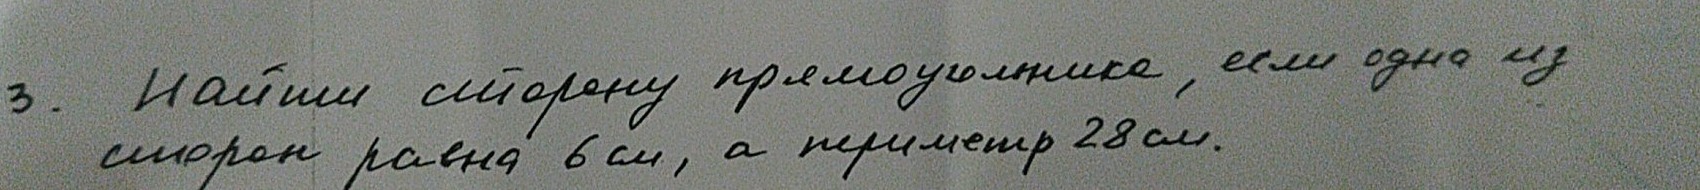 3. Найти сторону прямоугольника, если одна из
сторон равна 6 см, а периметр 28 см.